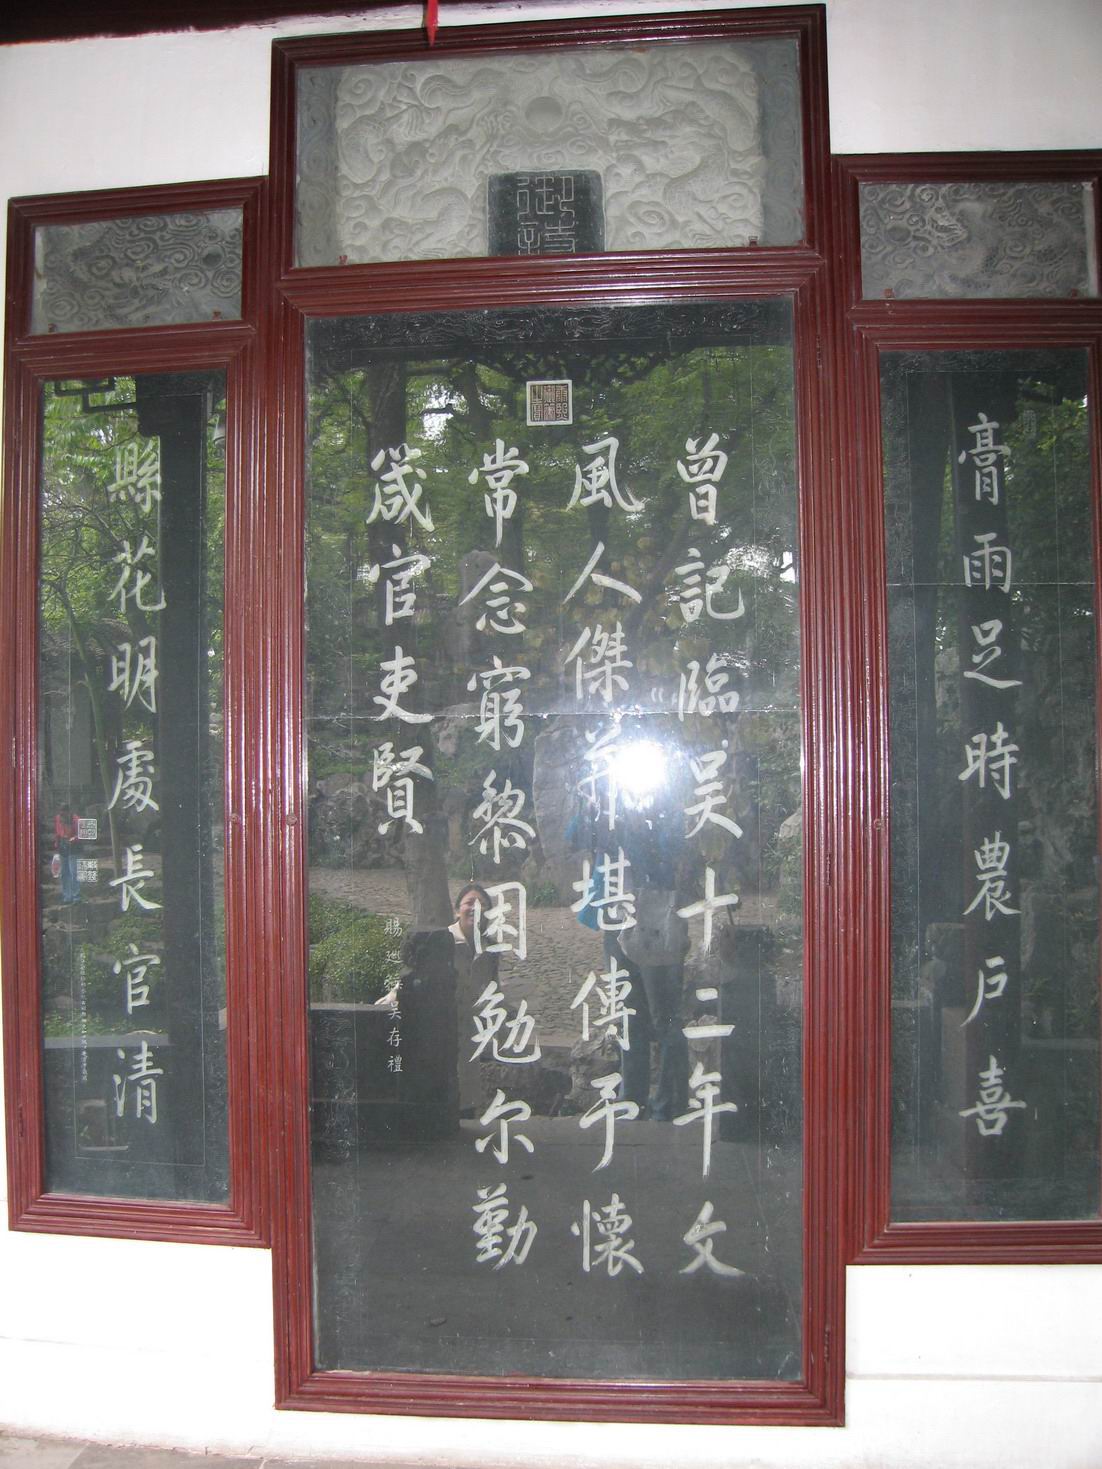 御詩
膏雨足時農戶喜
曾記臨吳十二年文
風人傑並堪傳予懷
常念窮黎困勉尔勤
箴官吏賢
賜巡撫吳存禮
縣花明處長官清